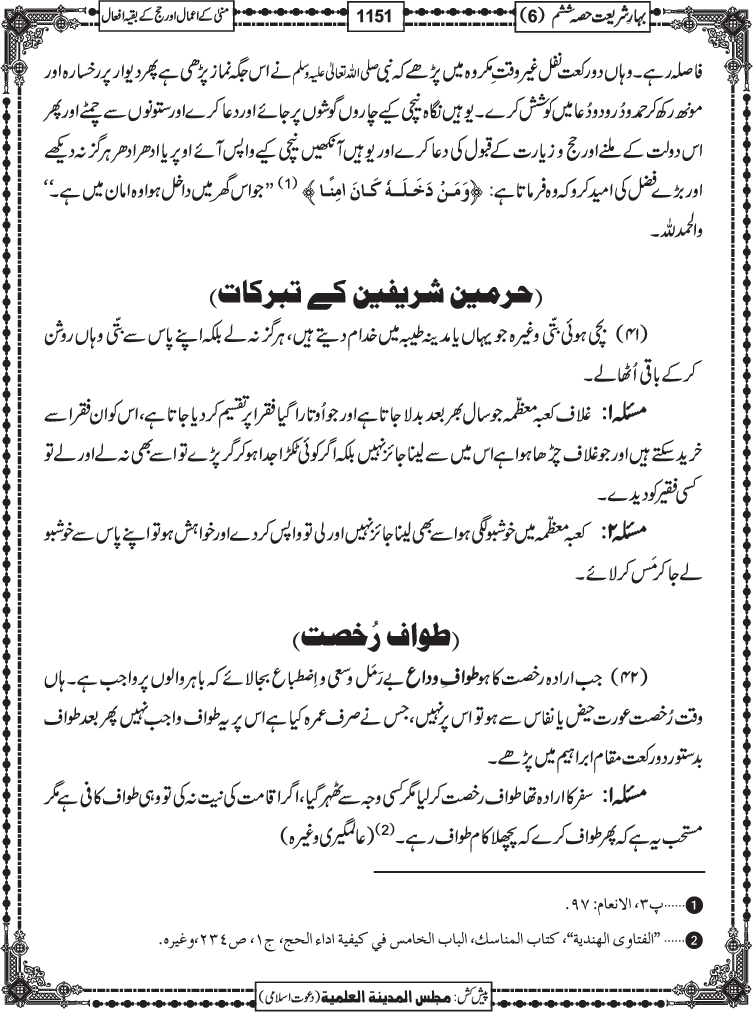 بہارِ شریعت حصہ ششم (6)
1151
منیٰ کے اعمال اور حج کے بقیہ افعال
فاصلہ رہے۔ وہاں دو رکعت نفل غیر وقتِ مکروہ میں پڑھے کہ نبی صلی اللہ تعالیٰ علیہ وسلم نے اس جگہ نماز پڑھی ہے پھر دیوار پر رخسارہ اور
مونھ رکھ کر حمد و دُرود و دُعا میں کوشش کرے۔ یوہیں نگاہ نیچی کیے چاروں گوشوں پر جائے اور دعا کرے اور ستونوں سے چمٹے اور پھر
اس دولت کے ملنے اور حج و زیارت کے قبول کی دعا کرے اور یوہیں آنکھیں نیچی کیے واپس آئے اوپر یا ادھر ادھر ہرگز نہ دیکھے
اور بڑے فضل کی امید کرو کہ وہ فرماتا ہے: ﴿وَمَنْ دَخَلَـهٗ كَانَ اٰمِنًـا﴾ (1) ’’جو اس گھر میں داخل ہوا وہ امان میں ہے۔‘‘
والحمدللہ۔
(حرمین شریفین کے تبرکات)
(۴۱) بچی ہوئی بتّی وغیرہ جو یہاں یا مدینہ طیبہ میں خدام دیتے ہیں، ہرگز نہ لے بلکہ اپنے پاس سے بتّی وہاں روشن
کرکے باقی اُٹھالے۔
مسئلہ ۱: غلاف کعبہ معظّمہ جو سال بھر بعد بدلا جاتا ہے اور جو اُوتارا گیا فقرا پر تقسیم کردیا جاتا ہے، اس کو ان فقرا سے
خرید سکتے ہیں اور جو غلاف چڑھا ہوا ہے اس میں سے لینا جائز نہیں بلکہ اگر کوئی ٹکڑا جدا ہو کر گر پڑے تو اسے بھی نہ لے اور لے تو
کسی فقیر کو دیدے۔
مسئلہ ۲: کعبہ معظّمہ میں خوشبو لگی ہو اسے بھی لینا جائز نہیں اور لی تو واپس کردے اور خواہش ہو تو اپنے پاس سے خوشبو
لے جا کر مَس کرلائے۔
(طواف رُخصت)
(۴۲) جب ارادہ رخصت کا ہو طوافِ وداع بے رَمَل و سعی و اِضطباع بجالائے کہ باہر والوں پر واجب ہے۔ ہاں
وقت رُخصت عورت حیض یا نفاس سے ہو تو اس پر نہیں، جس نے صرف عمرہ کیا ہے اس پر یہ طواف واجب نہیں پھر بعد طواف
بدستور دو رکعت مقام ابراہیم میں پڑھے۔
مسئلہ ۱: سفر کا ارادہ تھا طواف رخصت کرلیا مگر کسی وجہ سے ٹھہر گیا، اگر اقامت کی نیت نہ کی تو وہی طواف کافی ہے مگر
مستحب یہ ہے کہ پھر طواف کرے کہ پچھلا کام طواف رہے۔ (2) (عالمگیری وغیرہ)
1 ......پ۳، الانعام: ۹۷.
2 ...... ”الفتاوی الھندیة“، کتاب المناسك، الباب الخامس في كيفية اداء الحج، ج۱، ص۲۳٤،وغیرہ.
پیش کش: مجلس المدينة العلمية (دعوتِ اسلامی)